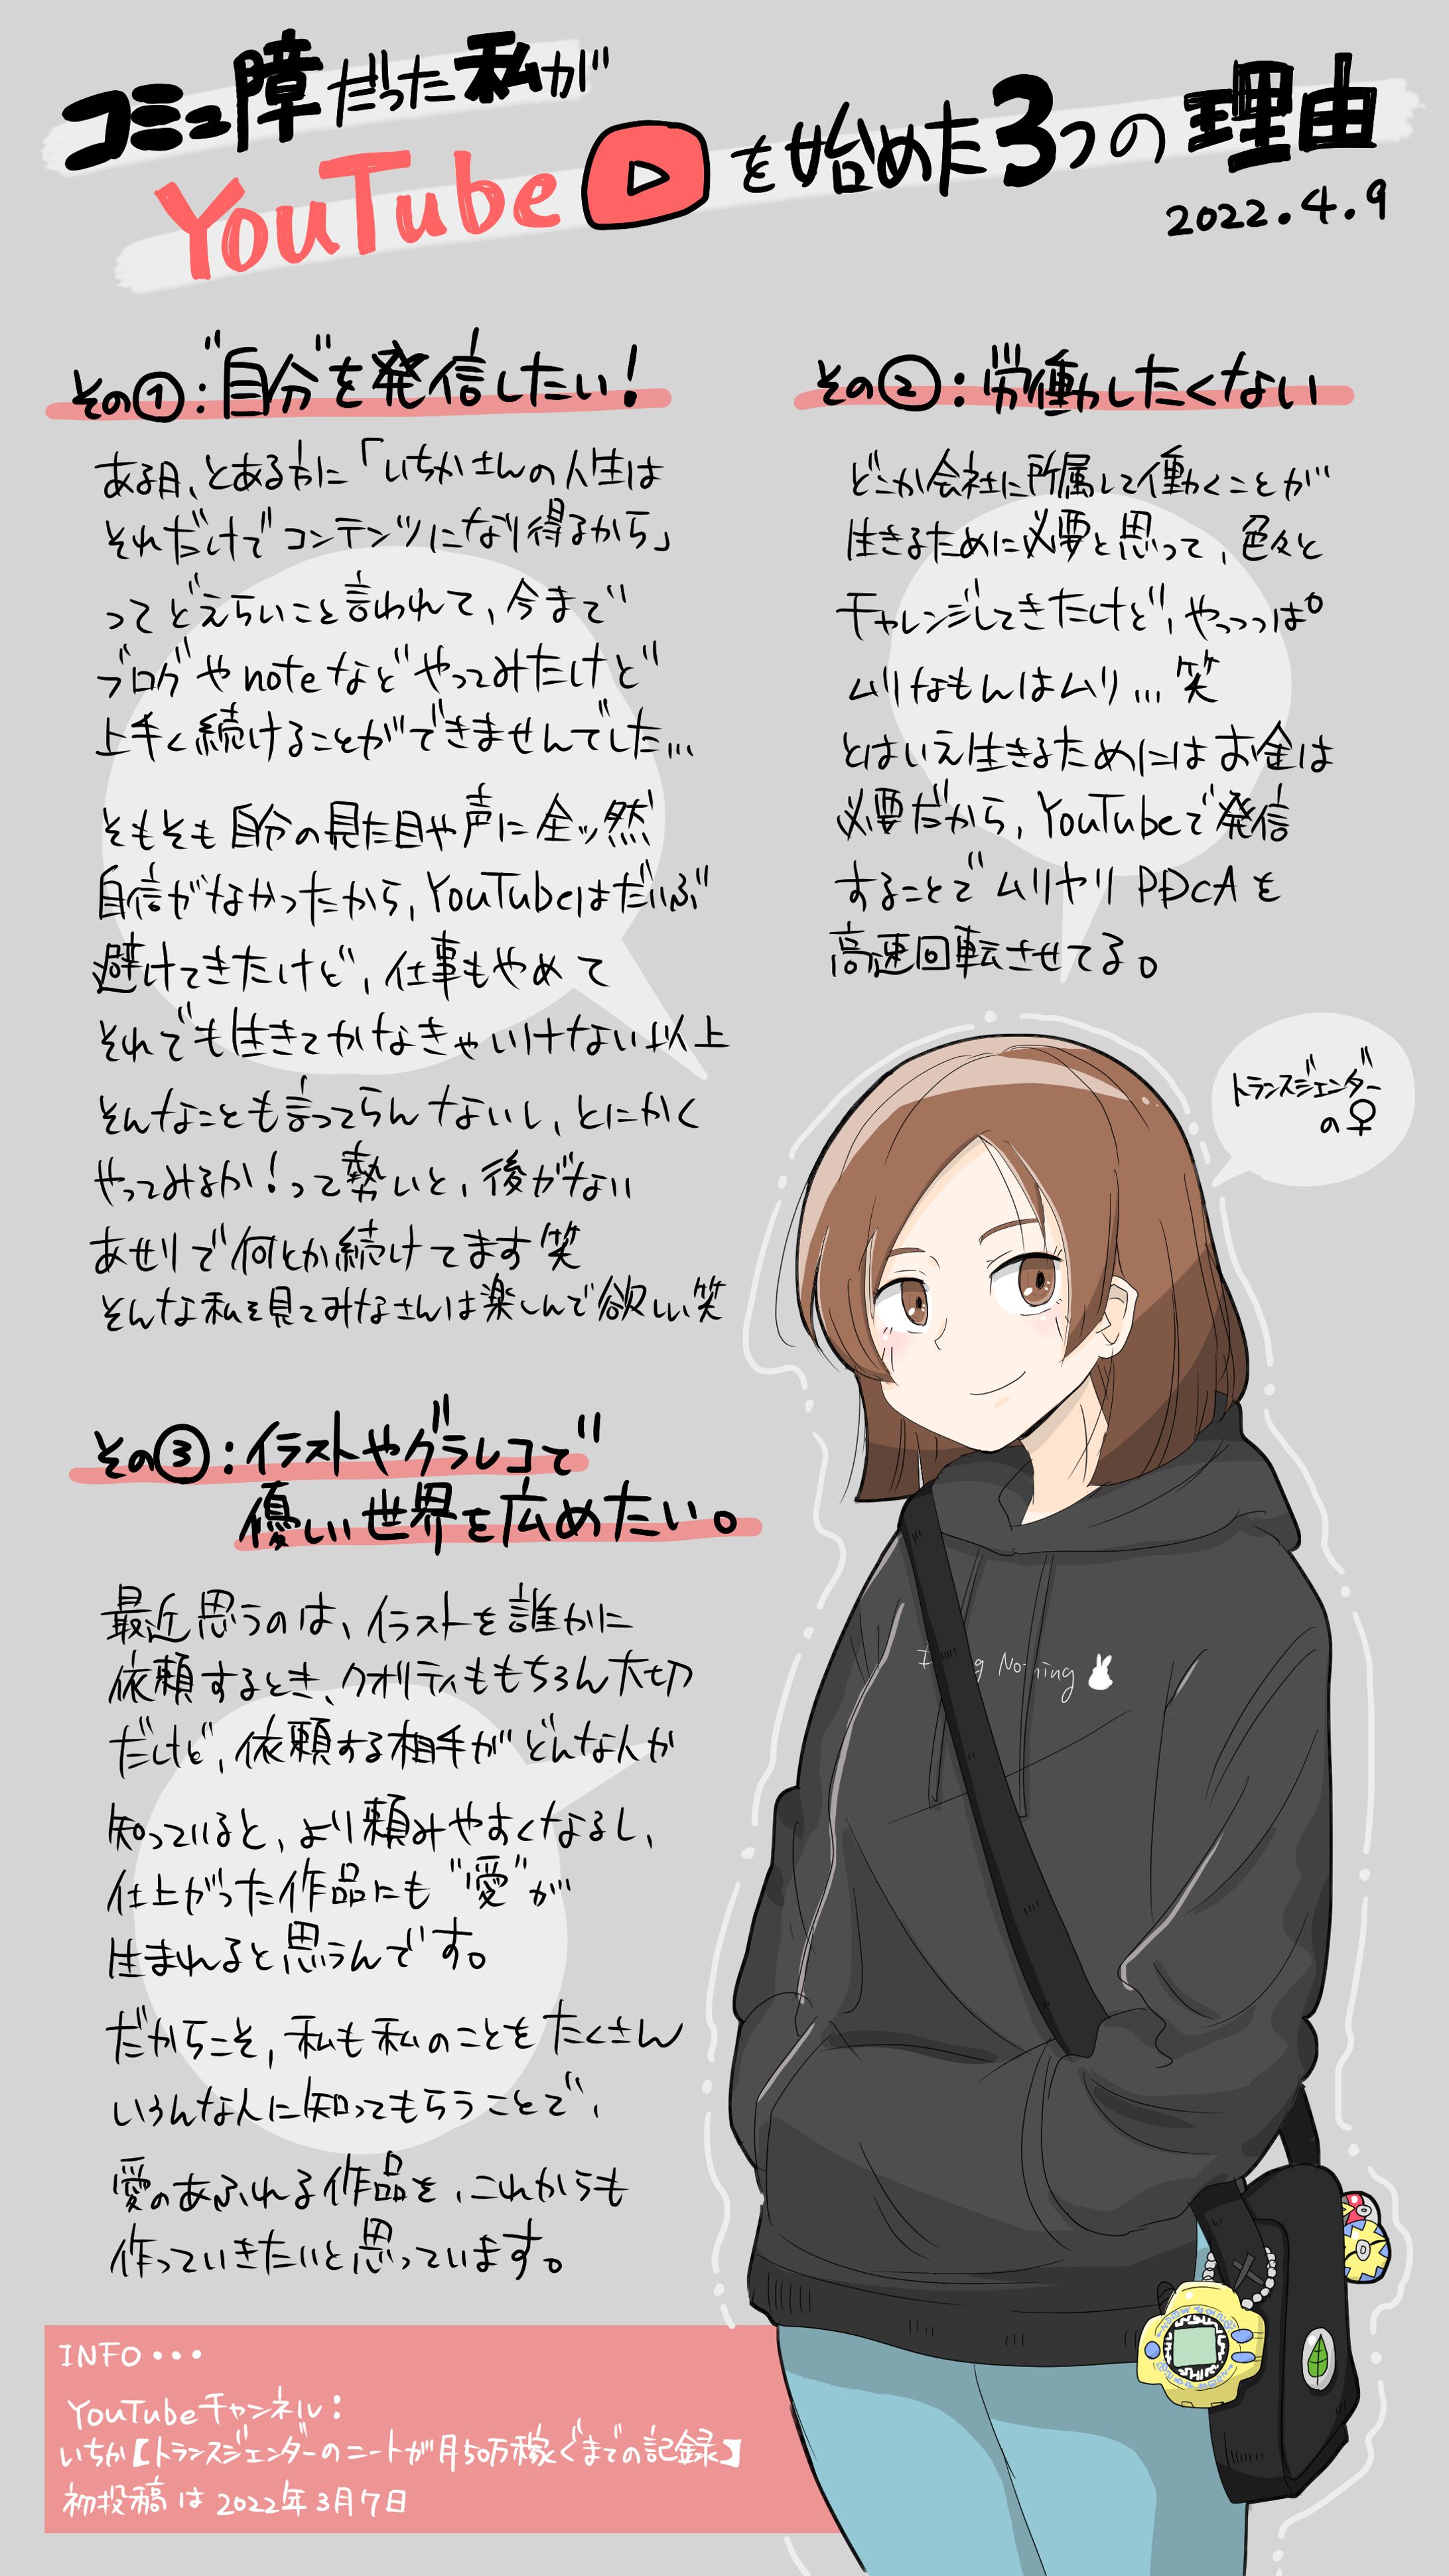 コミュ障だった私が
YouTubeを始めた3つの理由
2022.4.9
その①:"自分"を発信したい!
ある日、とある方に「いちかさんの人生は
それだけでコンテンツになり得るから」
ってどえらいこと言われて、今まで
ブログやnoteなどやってみたけど
上手く続けることができませんでした…
そもそも自分の見た目や声に全ッ然
自信がなかったから、YouTubeはだいぶ
避けてきたけど、仕事もやめて
それでも生きてかなきゃいけない以上
そんなことも言ってらんないし、とにかく
やってみるか!って勢いと、後がない
あせりで何とか続けてます笑
そんな私を見てみなさんは楽しんで欲しい笑
その②:労働したくない
どこか会社に所属して働くことが
生きるために必要と思って、色々と
チャレンジしてきたけど、やっっっぱ
ムリなもんはムリ…笑
とはいえ生きるためにはお金は
必要だから、YouTubeで発信
することでムリヤリPDCAを
高速回転させてる。
トランスジェンダー
の♀
その③:イラストやグラレコで
優しい世界を広めたい。
最近思うのは、イラストを誰かに
依頼するとき、クオリティももちろん大切
だけど、依頼する相手がどんな人か
知っていると、より頼みやすくなるし、
仕上がった作品にも"愛"が
生まれると思うんです。
だからこそ、私も私のことをたくさん
いろんな人に知ってもらうことで、
愛のあふれる作品を、これからも
作っていきたいと思っています。
Nothing
INFO・・・
YouTubeチャンネル:
いちか【トランスジェンダーのニートが月50万稼ぐまでの記録】
初投稿は2022年3月7日